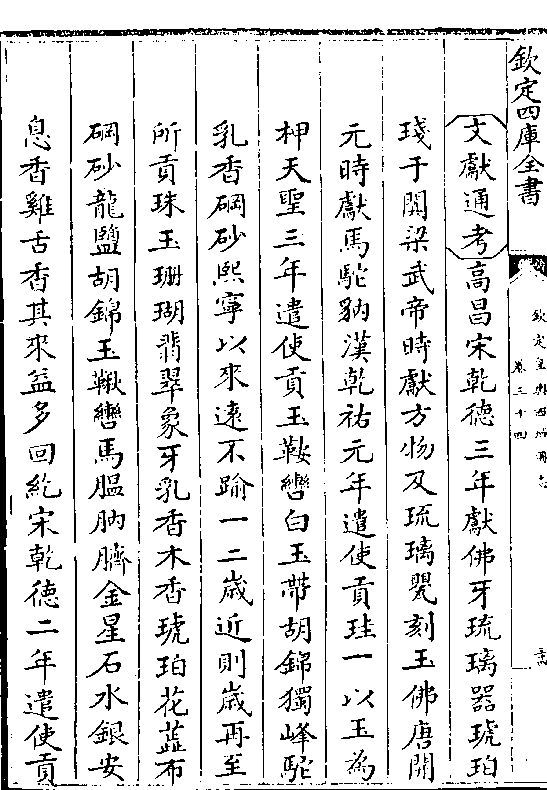 欽定四庫全書
欽定皇輿西域圖志
卷三十四
文獻通考高昌宋乾德三年獻佛牙琉璃器琥珀
琖于闐梁武帝時獻方物及琉璃甖刻玉佛唐開
元時獻馬駝豽漢乾祐元年遣使貢珪一以玉為
柙天聖三年遣使貢玉鞍轡白玉帶胡錦獨峰駝
乳香硇砂熙寧以來遠不踰一二歲近則歲再至
所貢珠玉珊瑚翡翠象牙乳香木香琥珀花蕋布
硇砂龍鹽胡錦玉鞦轡馬膃肭臍金星石水銀安
息香雞舌香其來益多回紇宋乾德二年遣使貢